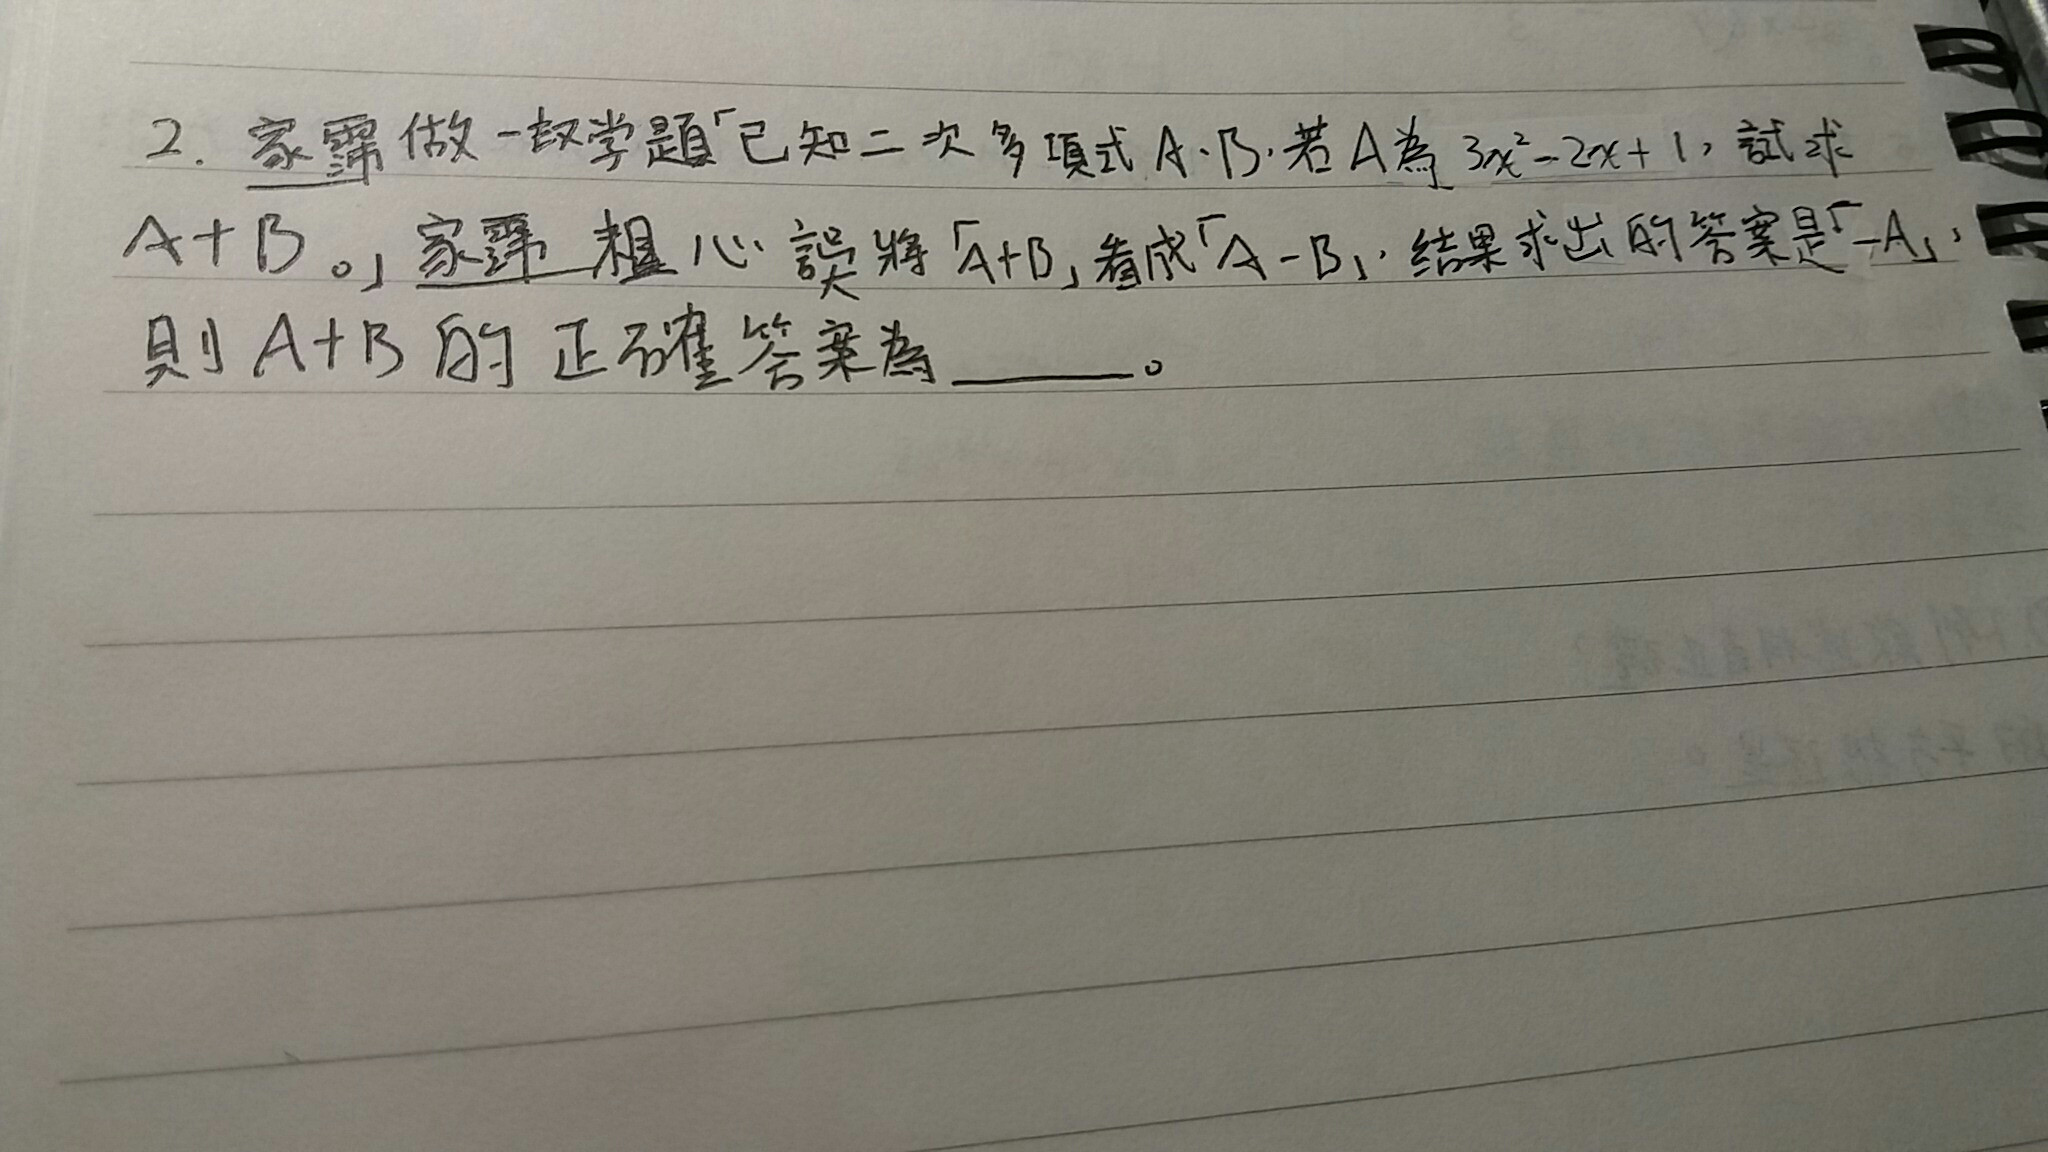 2. 家霈做一数学題「已知二次多項式A、B,若A為3x²-2x+1,試求
A+B。」家霈粗心誤將「A+B」看成「A-B」,結果求出的答案是「-A」,
則A+B的正確答案為______。